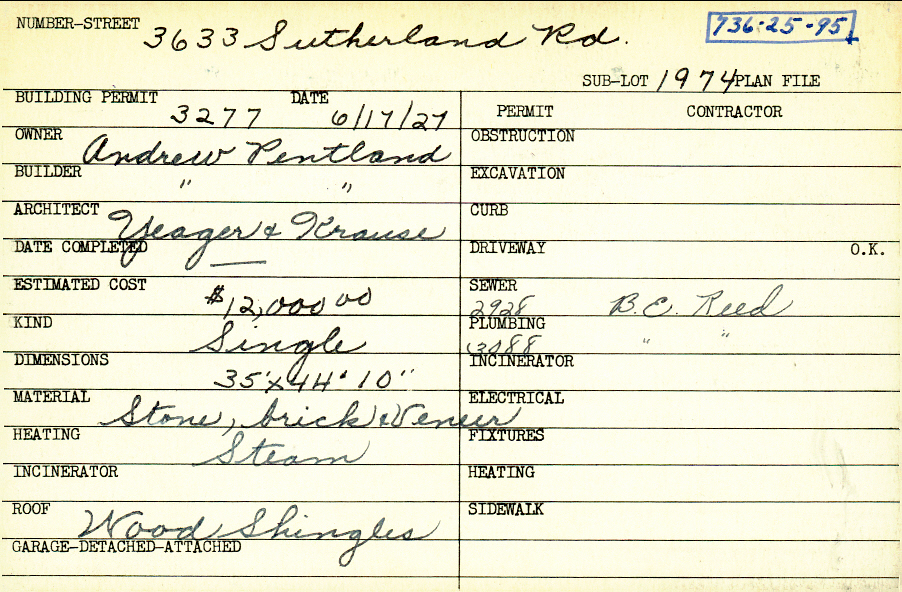 NUMBER-STREET 3633 Sutherland Rd. 736-25-95
SUB-LOT 1974 PLAN FILE
BUILDING PERMIT 3277 DATE 6/17/27
PERMIT CONTRACTOR
OWNER Andrew Pentland
OBSTRUCTION
BUILDER " "
EXCAVATION
ARCHITECT Yeager & Krause
CURB
DATE COMPLETED —
DRIVEWAY O.K.
ESTIMATED COST $12,000 00
SEWER 2928 B.E. Reed
KIND Single
PLUMBING 3088 " "
DIMENSIONS 35'x44'10"
INCINERATOR
MATERIAL Stone, brick & Veneer
ELECTRICAL
HEATING Steam
FIXTURES
INCINERATOR
HEATING
ROOF Wood Shingles
SIDEWALK
GARAGE-DETACHED-ATTACHED